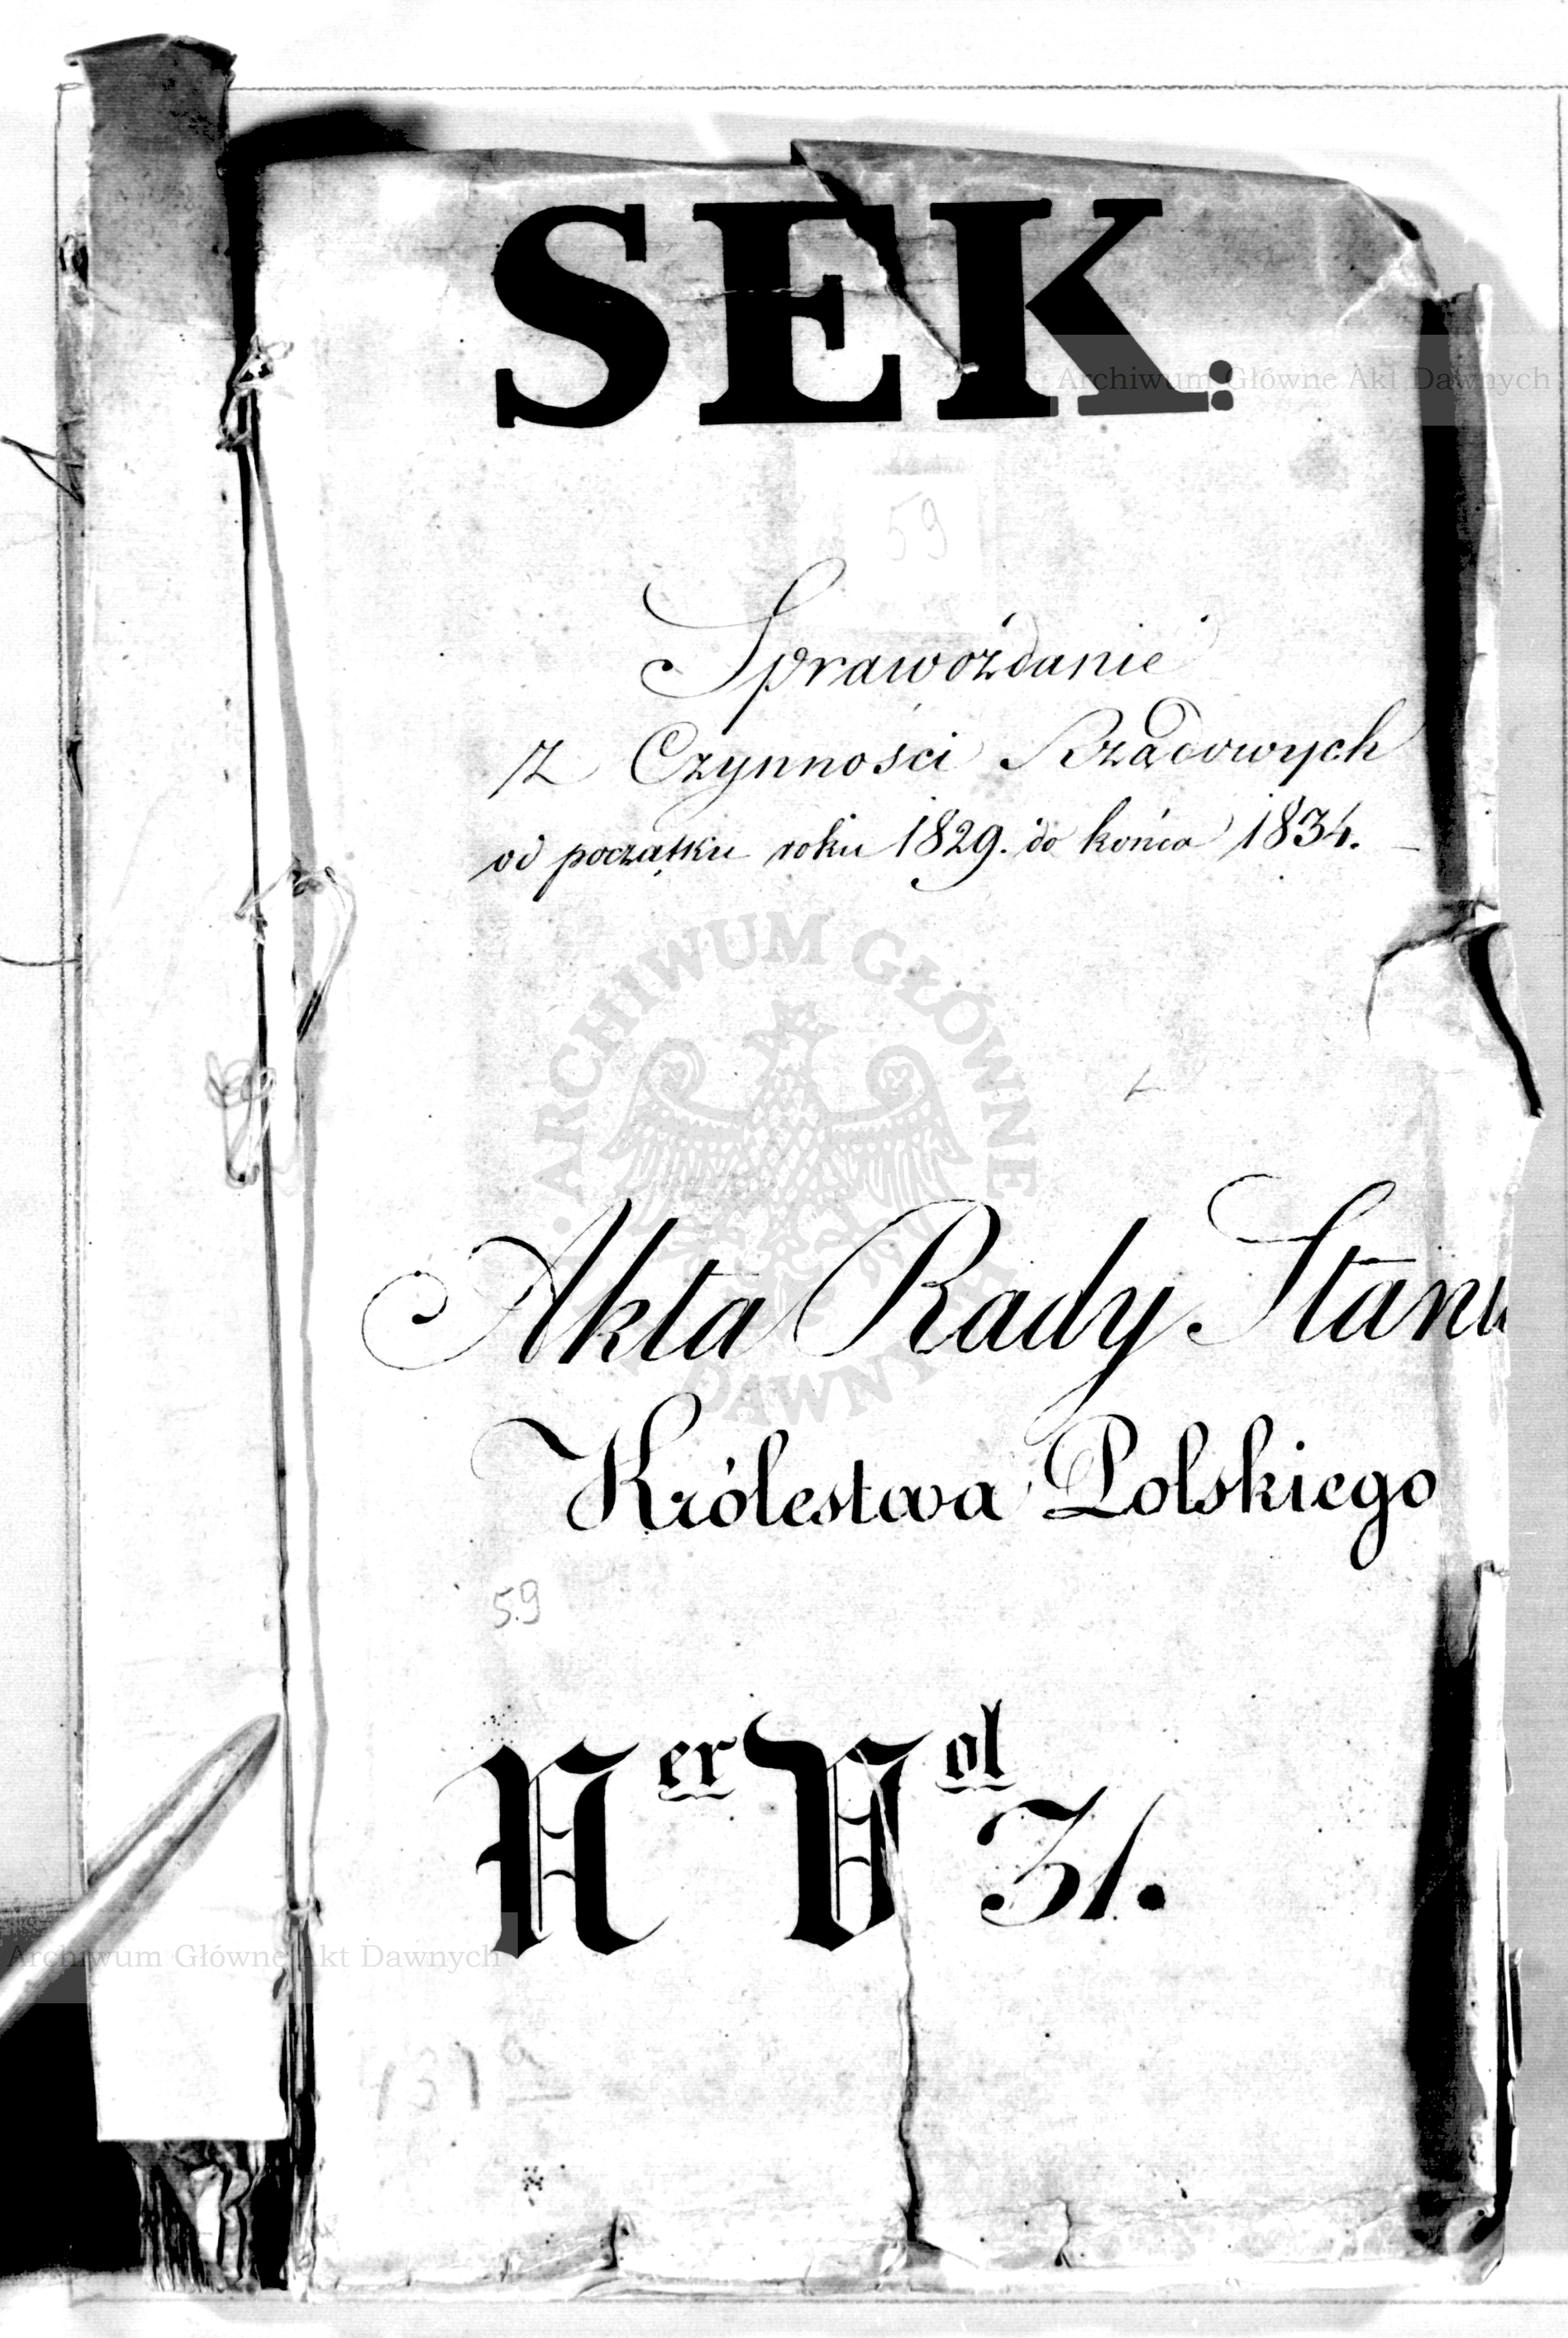 SEK:
Archiwum Główne Akt Dawnych
59
Sprawozdanie
z Czynności Rządowych
od początku roku 1829. do końca 1834.
ARCHIWUM GŁÓWNE AKT DAWNYCH
Akta Rady Stanu
Królestwa Polskiego
59
Ner Vol 31.
Archiwum Główne Akt Dawnych